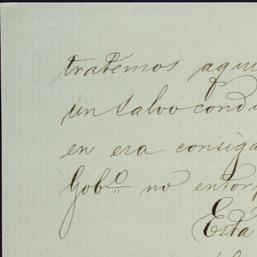 tratemos aqu
un salvo cond
en esa consig
Gobº no entor
Está